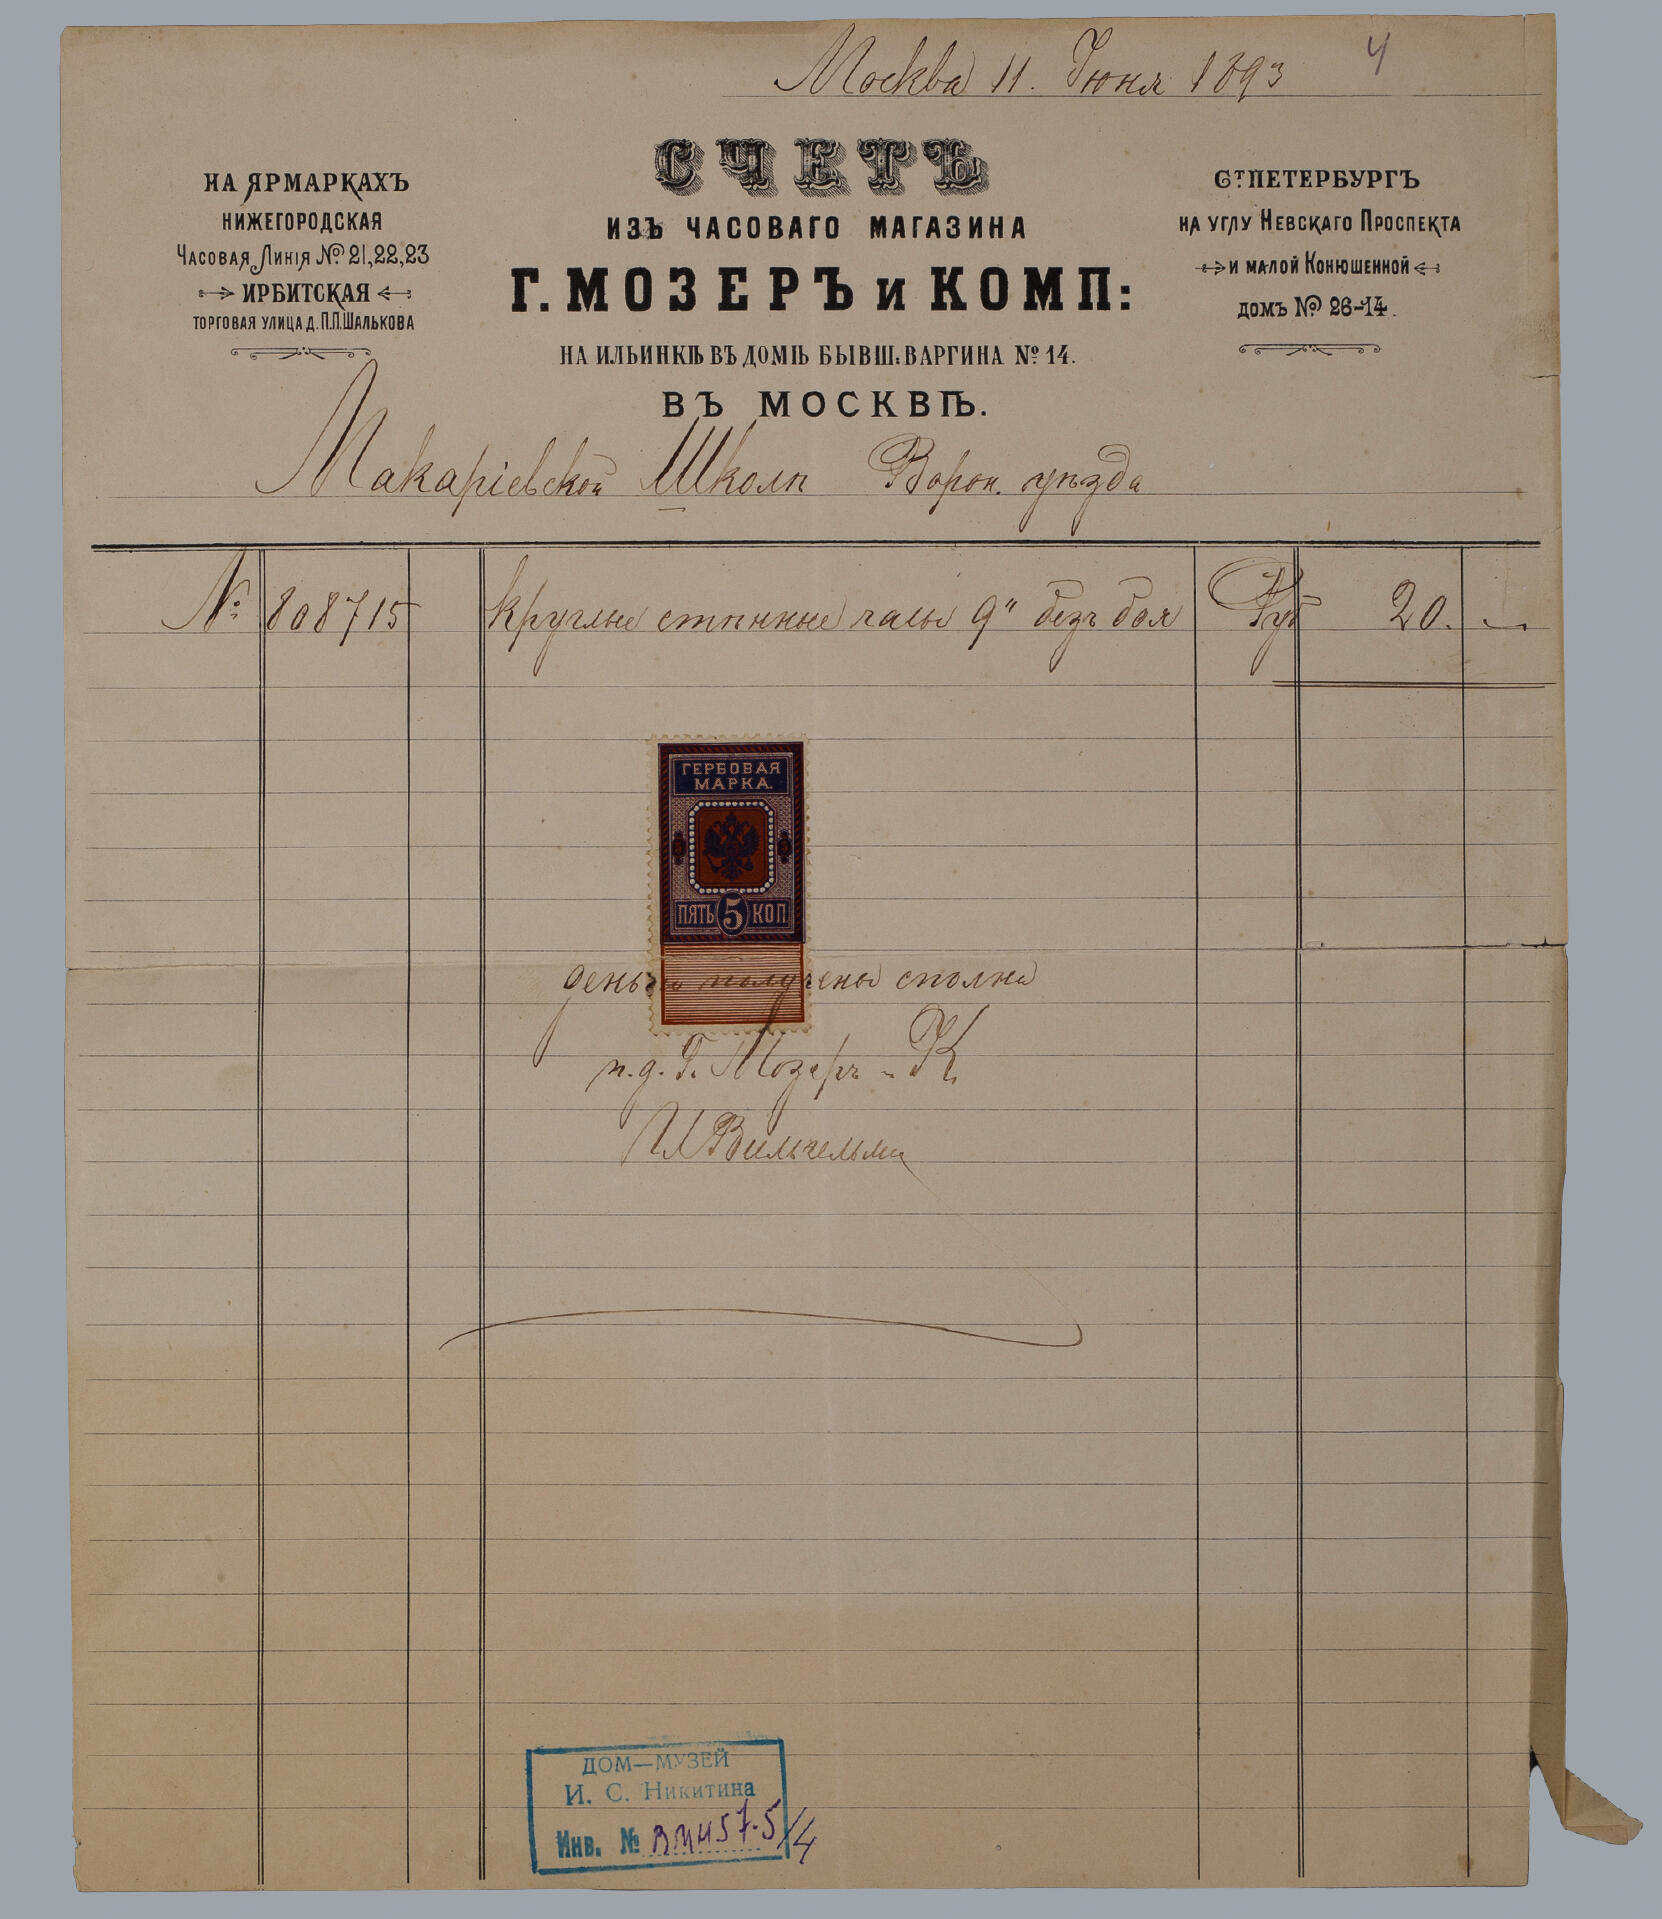 Москва 11. Іюня 1893
4
СЧЕТЪ
ИЗЪ ЧАСОВАГО МАГАЗИНА
Г. МОЗЕРЪ и КОМП:
НА ИЛЬИНКѢ ВЪ ДОМѢ БЫВШ: ВАРГИНА № 14.
ВЪ МОСКВѢ.
НА ЯРМАРКАХЪ
НИЖЕГОРОДСКАЯ
ЧАСОВАЯ ЛИНІЯ № 21,22,23
ИРБИТСКАЯ
ТОРГОВАЯ УЛИЦА Д. П.П. ШАЛЬКОВА
СТ ПЕТЕРБУРГЪ
НА УГЛУ НЕВСКАГО ПРОСПЕКТА
И МАЛОЙ КОНЮШЕННОЙ
ДОМЪ № 26-14.
Макаріевской Школѣ Ворон. уѣзда
№ 808715 круглые стѣнные часы 9" безъ боя Руб 20. —
ГЕРБОВАЯ
МАРКА.
ПЯТЬ 5 КОП
деньги получены сполна
п. д. Г. Мозеръ и К
Вильгельми
ДОМ—МУЗЕЙ
И. С. Никитина
Инв. № ВМН57-5/4